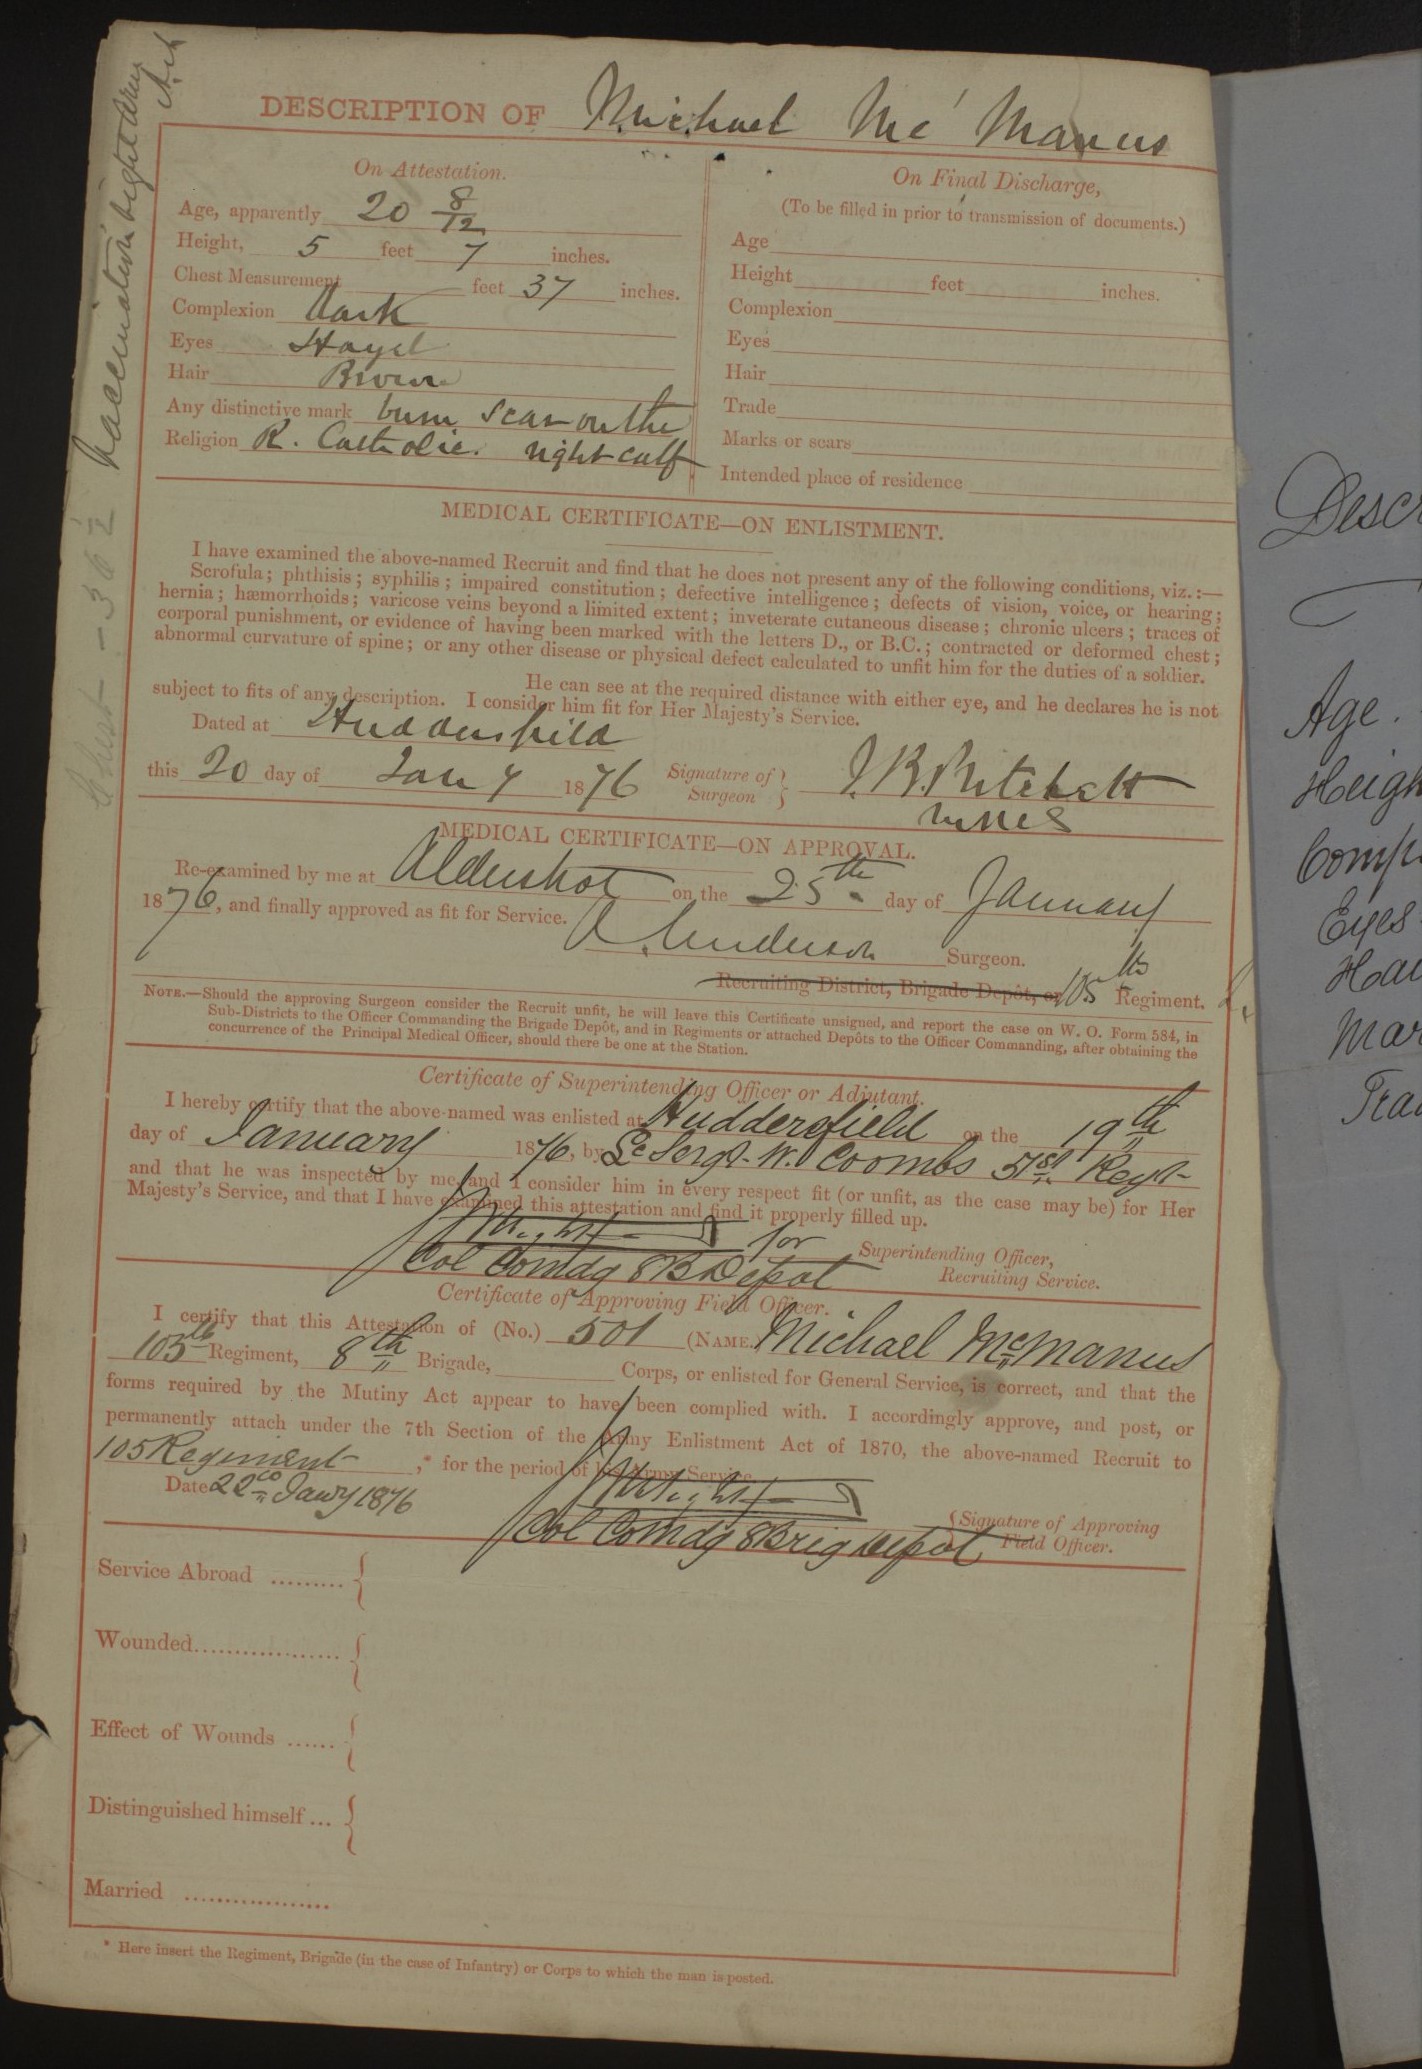 DESCRIPTION OF Michael Mc Manus
On Attestation.
Age, apparently 20 8/12
Height, 5 feet 7 inches.
Chest Measurement feet 37 inches.
Complexion Dark
Eyes Hazel
Hair Brown
Any distinctive mark burn scar on the
Religion R. Catholic. right calf
On Final Discharge,
(To be filled in prior to transmission of documents.)
Age
Height feet inches.
Complexion
Eyes
Hair
Trade
Marks or scars
Intended place of residence
Vaccination right arm
Chest - 36 1/2
MEDICAL CERTIFICATE—ON ENLISTMENT.
I have examined the above-named Recruit and find that he does not present any of the following conditions, viz.:—
Scrofula; phthisis; syphilis; impaired constitution; defective intelligence; defects of vision, voice, or hearing;
hernia; hæmorrhoids; varicose veins beyond a limited extent; inveterate cutaneous disease; chronic ulcers; traces of
corporal punishment, or evidence of having been marked with the letters D., or B.C.; contracted or deformed chest;
abnormal curvature of spine; or any other disease or physical defect calculated to unfit him for the duties of a soldier.
He can see at the required distance with either eye, and he declares he is not
subject to fits of any description. I consider him fit for Her Majesty's Service.
Dated at Huddersfield
this 20 day of Jany 1876 Signature of Surgeon
MEDICAL CERTIFICATE—ON APPROVAL.
Re-examined by me at Aldershot on the 25th day of January
1876, and finally approved as fit for Service.
A. Anderson Surgeon.
Recruiting District, Brigade Depôt, or 105th Regiment.
NOTE.—Should the approving Surgeon consider the Recruit unfit, he will leave this Certificate unsigned, and report the case on W. O. Form 584, in
Sub-Districts to the Officer Commanding the Brigade Depôt, and in Regiments or attached Depôts to the Officer Commanding, after obtaining the
concurrence of the Principal Medical Officer, should there be one at the Station.
Certificate of Superintending Officer or Adjutant.
I hereby certify that the above-named was enlisted at Huddersfield on the 19th
day of January 1876, by Sergt. W. Coombs 51st Regt
and that he was inspected by me, and I consider him in every respect fit (or unfit, as the case may be) for Her
Majesty's Service, and that I have examined this attestation and find it properly filled up.
for Superintending Officer,
Col Comdg 8 B Depot Recruiting Service.
Certificate of Approving Field Officer.
I certify that this Attestation of (No.) 501 (NAME.) Michael McManus
105th Regiment, 8th Brigade, Corps, or enlisted for General Service, is correct, and that the
forms required by the Mutiny Act appear to have been complied with. I accordingly approve, and post, or
permanently attach under the 7th Section of the Army Enlistment Act of 1870, the above-named Recruit to
105 Regiment ,* for the period of his Army Service.
Date 22nd Jany 1876
Col Comdg 8 Brig Depot
Signature of Approving
Field Officer.
Service Abroad .........
Wounded..................
Effect of Wounds ......
Distinguished himself ...
Married ..................
* Here insert the Regiment, Brigade (in the case of Infantry) or Corps to which the man is posted.
Age
Eyes